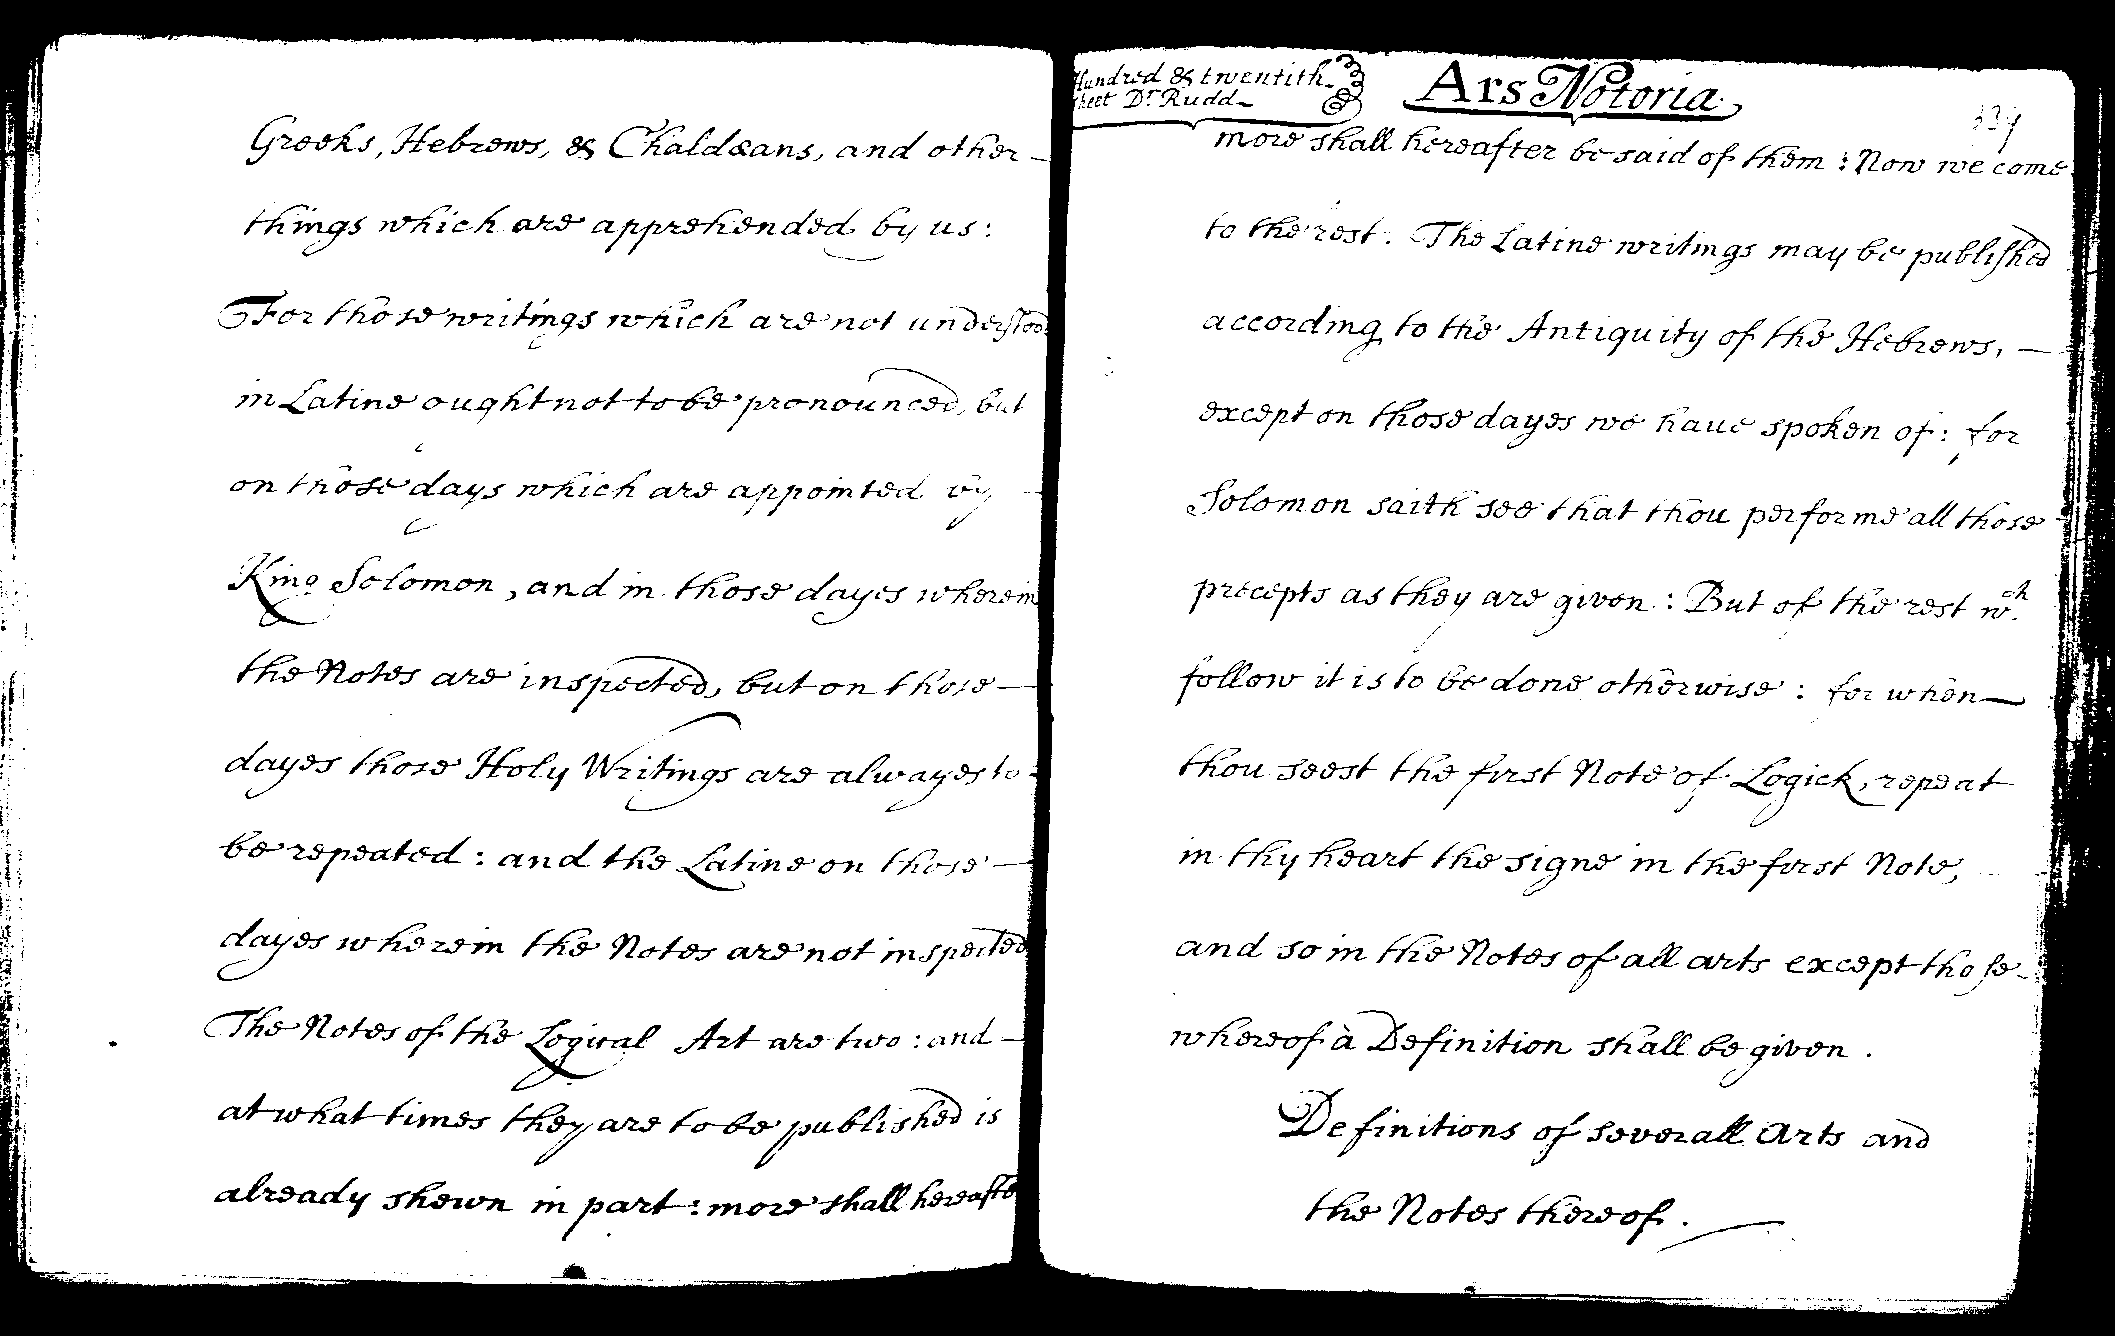 Greeks, Hebrews, & Chaldæans, and other
things which are apprehended by us:
For those writings which are not understood
in Latine ought not to be pronounced, but
on those days which are appointed by
King Solomon, and in those dayes wherein
the Notes are inspected, but on those
dayes those Holy Writings are alwayes to
be repeated: and the Latine on those
dayes wherein the Notes are not inspected
The Notes of the Logical Art are two: and
at what times they are to be published is
already shewn in part: more shall hereafte
Hundred & twentith
sheet Dr Rudd
Ars Notoria
more shall hereafter be said of them: Now we come
to the rest. The Latine writings may be published
according to the Antiquity of the Hebrews,
except on those dayes we haue spoken of: for
Solomon saith see that thou performe all those
precepts as they are given: But of the rest wch
follow it is to be done otherwise: for when
thou seest the first Note of Logick, repeat
in thy heart the signe in the first Note,
and so in the Notes of all arts except those
whereof à Definition shall be given.
Definitions of severall Arts and
the Notes thereof.